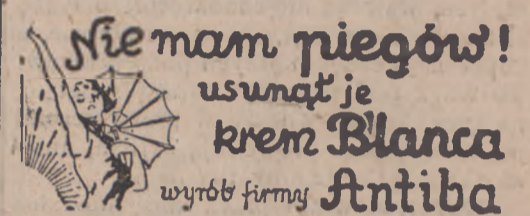 Nie mam piegów!
usunął je
krem Blanca
wyrób firmy Antiba